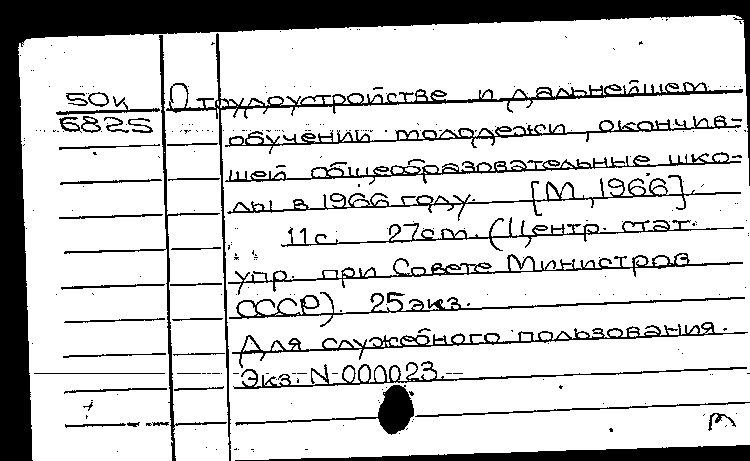 50к О трудоустройстве и дальнейшем
6825 обучении молодежи, окончив-
шей общеобразовательные шко-
лы в 1966 году. [М., 1966].
11с. 27см. (Центр. стат.
упр. при Совете Министров
СССР). 25экз.
Для служебного пользования.
Экз. N 000023.